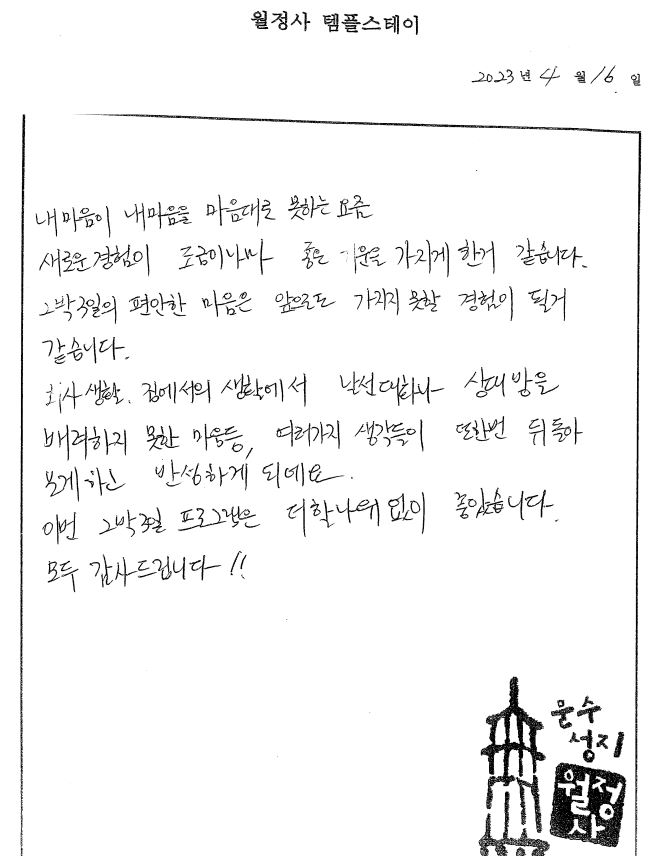 월정사 템플스테이
2023년 4월 16일
내마음이 내마음을 마음대로 못하는 요즘
새로운 경험이 조금이나마 좋은 기운을 가지게 한거 같습니다.
2박3일의 편안한 마음은 앞으로도 가지지 못할 경험이 될거
같습니다.
회사생활, 집에서의 생활에서 낯선 대화나 상대방을
배려하지 못한 마음등, 여러가지 생각들이 또한번 뒤돌아
보게하고 반성하게 되네요.
이번 2박3일 프로그램은 더할나위 없이 좋았습니다.
모두 감사드립니다!!
문수
성지
월정
사